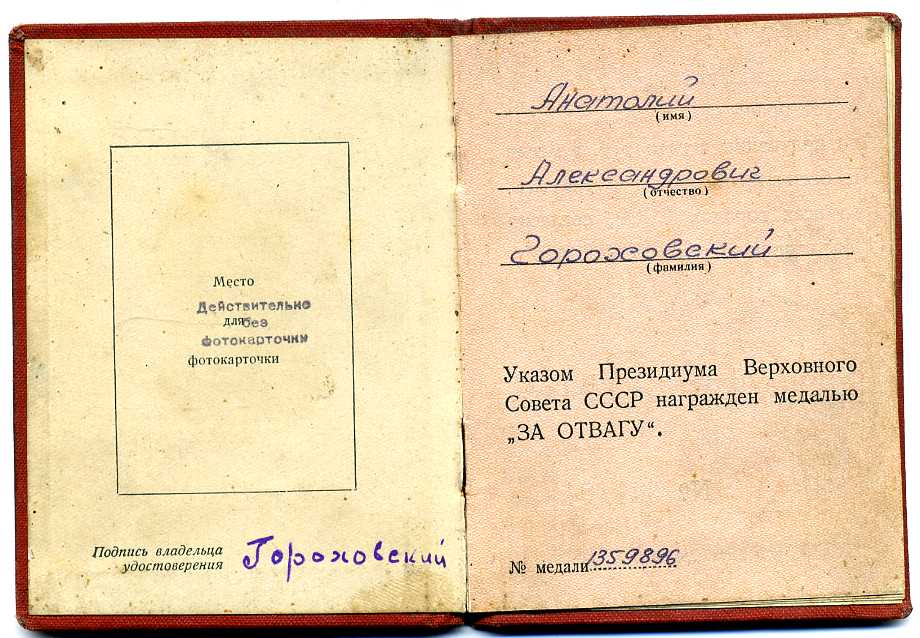 Место
Действительно
для без
фотокарточки
фотокарточки
Подпись владельца
удостоверения
Гороховский
Анатолий
(имя)
Александрович
(отчество)
Гороховский
(фамилия)
Указом Президиума Верховного
Совета СССР награжден медалью
„ЗА ОТВАГУ“.
№ медали 1359896